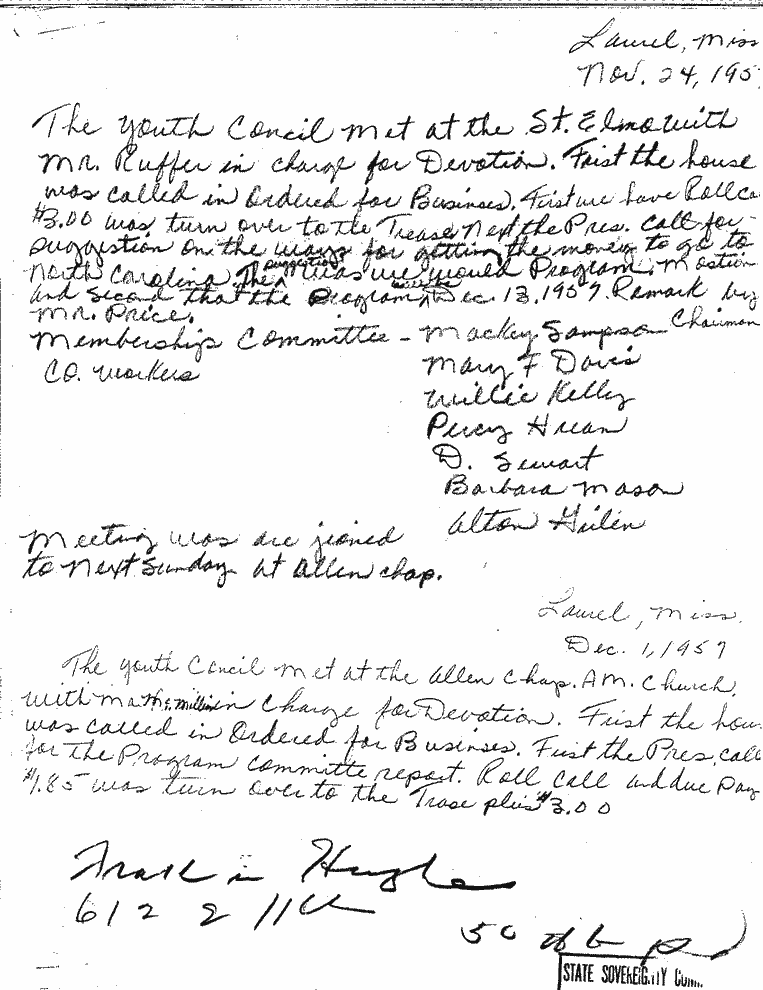 Laurel, Miss
Nov. 24, 195
The Youth Concil Met at the St. Elmo with
Mr. Ruffer in charge for Devotion. Frist the house
was called in Ordered for Businses. First we have Roll ca
$3.00 was turn over to the Trease Next the Pres. call for
suggestion on the ways for getting the money to go to
North Carolina. The suggestion was we would Program. Mostion
and second that the Program will be Dec. 13, 1957. Remark by
Mr. Price.
Membership Committee - Mackey Sampson Chairman
Co. Workers
Mary F Davis
Willie Kelly
Percy
D. Sewart
Barbara Mason
Alton
Meeting was are joined
to Next Sunday at Allen chap.
Laurel, Miss.
Dec. 1, 1957
The Youth Concil Met at the Allen Chap. A.M. Church,
with in Charge for Devotion. Frist the hou
was called in Ordered for Businses. Frist the Pres. call
for the Program committe report. Roll call and due pay
was turn over to the Trase plus $3.00
Hughes
612
50
STATE SOVEREIGNTY COMM.